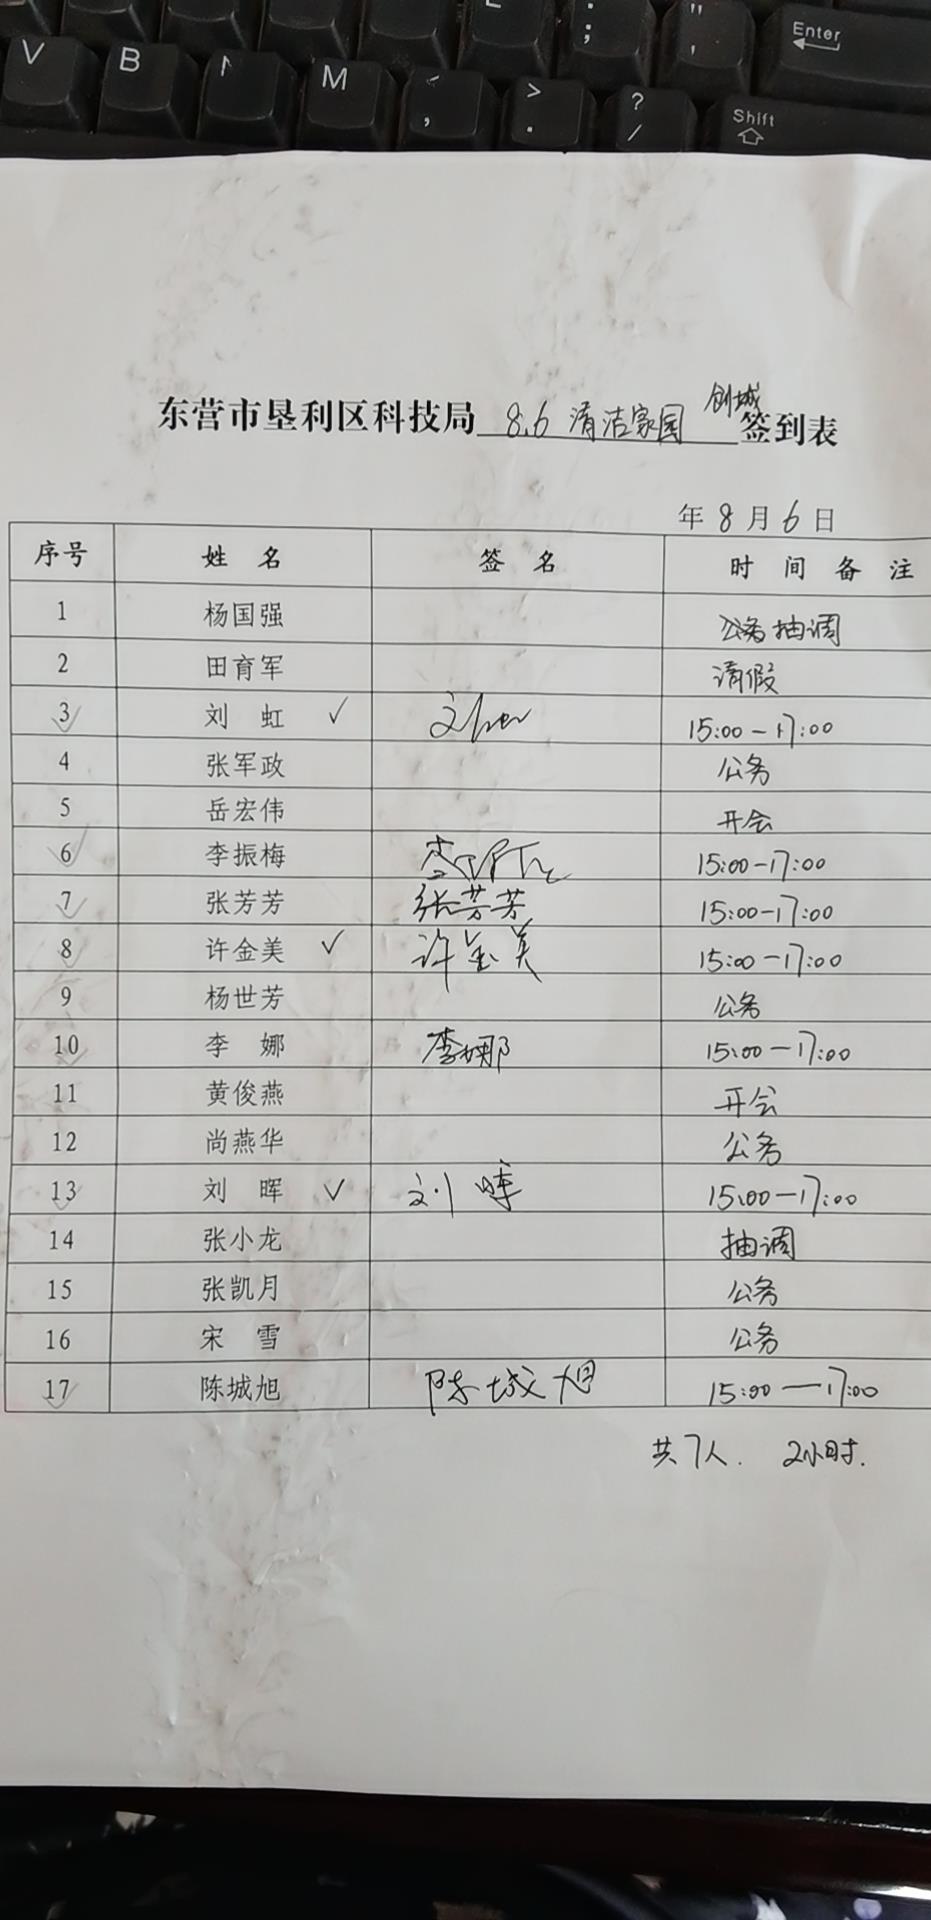 Enter
V B M < , > . ? / : ; " '
Shift
创城
东营市垦利区科技局 8.6 清洁家园 签到表
年 8 月 6 日
序号 姓 名 签 名 时 间 备 注
1 杨国强 公务抽调
2 田育军 请假
3 刘 虹 ✓ 15:00-17:00
4 张军政 公务
5 岳宏伟 开会
6 李振梅 15:00-17:00
7 张芳芳 张芳芳 15:00-17:00
8 许金美 ✓ 许金美 15:00-17:00
9 杨世芳 公务
10 李 娜 李娜 15:00-17:00
11 黄俊燕 开会
12 尚燕华 公务
13 刘 晖 ✓ 刘晖 15:00-17:00
14 张小龙 抽调
15 张凯月 公务
16 宋 雪 公务
17 陈城旭 陈城旭 15:00-17:00
共7人. 2小时.